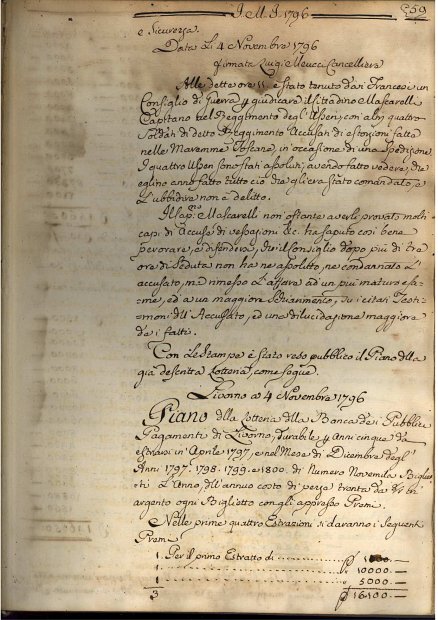 I. M. I. 1796
e Sicurezza.
Data li 4 Novembre 1796
firmato Luigi Meucci Cancelliere
Alle dette ore 11 è stato tenuto dai Francesi un
Consiglio di Guerra p giudicare il Cittadino Mascarelli
Capitano nel Reggimento degl'Usseri, con altri quattro
Soldati di detto Reggimento Accusati di estorzioni fatte
nelle Maremme Toscane, in occasione di una Spedizione.
I quattro Usseri sono stati assoluti, avendo fatto vedere, che
eglino anno fatto tutto ciò che gli era stato comandato, e
l'ubbidire non è delitto.
Il Cap.no Mascarelli non ostante averli provati molti
capi di Accuse di vessazioni &c. ha saputo così bene
perorare, e difendersi, che il consiglio dopo più di tre
ore di Seduta non ha ne assoluto, ne condannato l'
accusato, ma rimesso l'affare ad un più maturo esa-
me, ed a un maggiore schiarimento, su i citati Testi-
moni dell'Accusato, ed una dilucidazione maggiore
de i fatti.
Con le Stampe è stato reso pubblico il Piano della
già descritta Lotteria, come segue.
Livorno a 4 Novembre 1796
Piano della Lotteria della Banca dei Pubblici
Pagamenti di Livorno, durabile p Anni cinque da
estrarsi in Aprile 1797, e nel Mese di Dicembre degl'
Anni 1797. 1798. 1799. e 1800. di Numero Novemila Bigliet-
ti l'Anno, dell'annuo costo di pezze trenta da 8/r in
argento ogni Biglietto con gli appresso Premi.
Nelle prime quattro Estrazioni si daranno i Seguenti
Premi
1. Per il primo Estratto di
1 10000.—
1 5000.—
3 16100.—